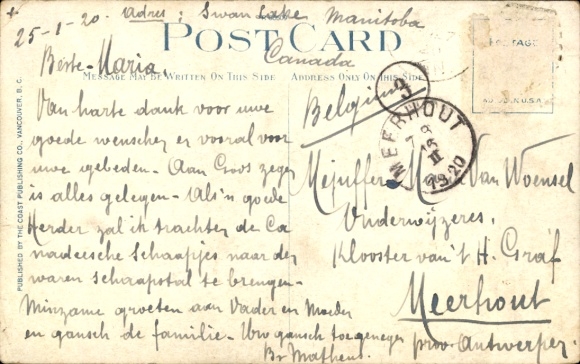 25-1-20. adres: Swan Lake Manitoba
Canada
POST CARD
MESSAGE MAY BE WRITTEN ON THIS SIDE ADDRESS ONLY ON THIS SIDE
Beste Maria,
Van harte dank voor uwe
goede wenschen en vooral voor
uwe gebeden. Aan Gods zegen
is alles gelegen. Als'n goede
Herder zal ik trachten de Ca
nadeesche Schaapjes naar den
waren schaapstal te brengen.
Minzame groeten aan Vader en Moeder
en gansch de familie. Uw gansch toegenegen
Br. Matheus.
PUBLISHED BY THE COAST PUBLISHING CO., VANCOUVER, B.C.
POSTAGE
U.S.A.
Belgium
3
MEERHOUT
1920
Mejuffer Van Woensel
Onderwijzeres,
Klooster van't H. Graf
Meerhout
prov. Antwerpen